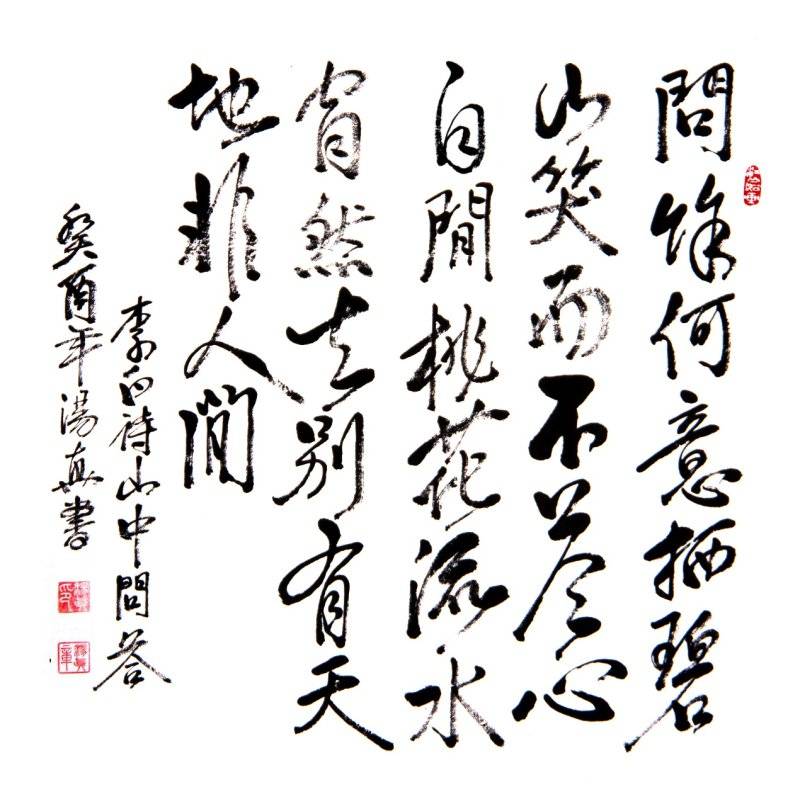 問餘何意栖碧
山笑而不答心
自閒桃花流水
窅然去別有天
地非人間
李白詩山中問答
癸酉年湯真書